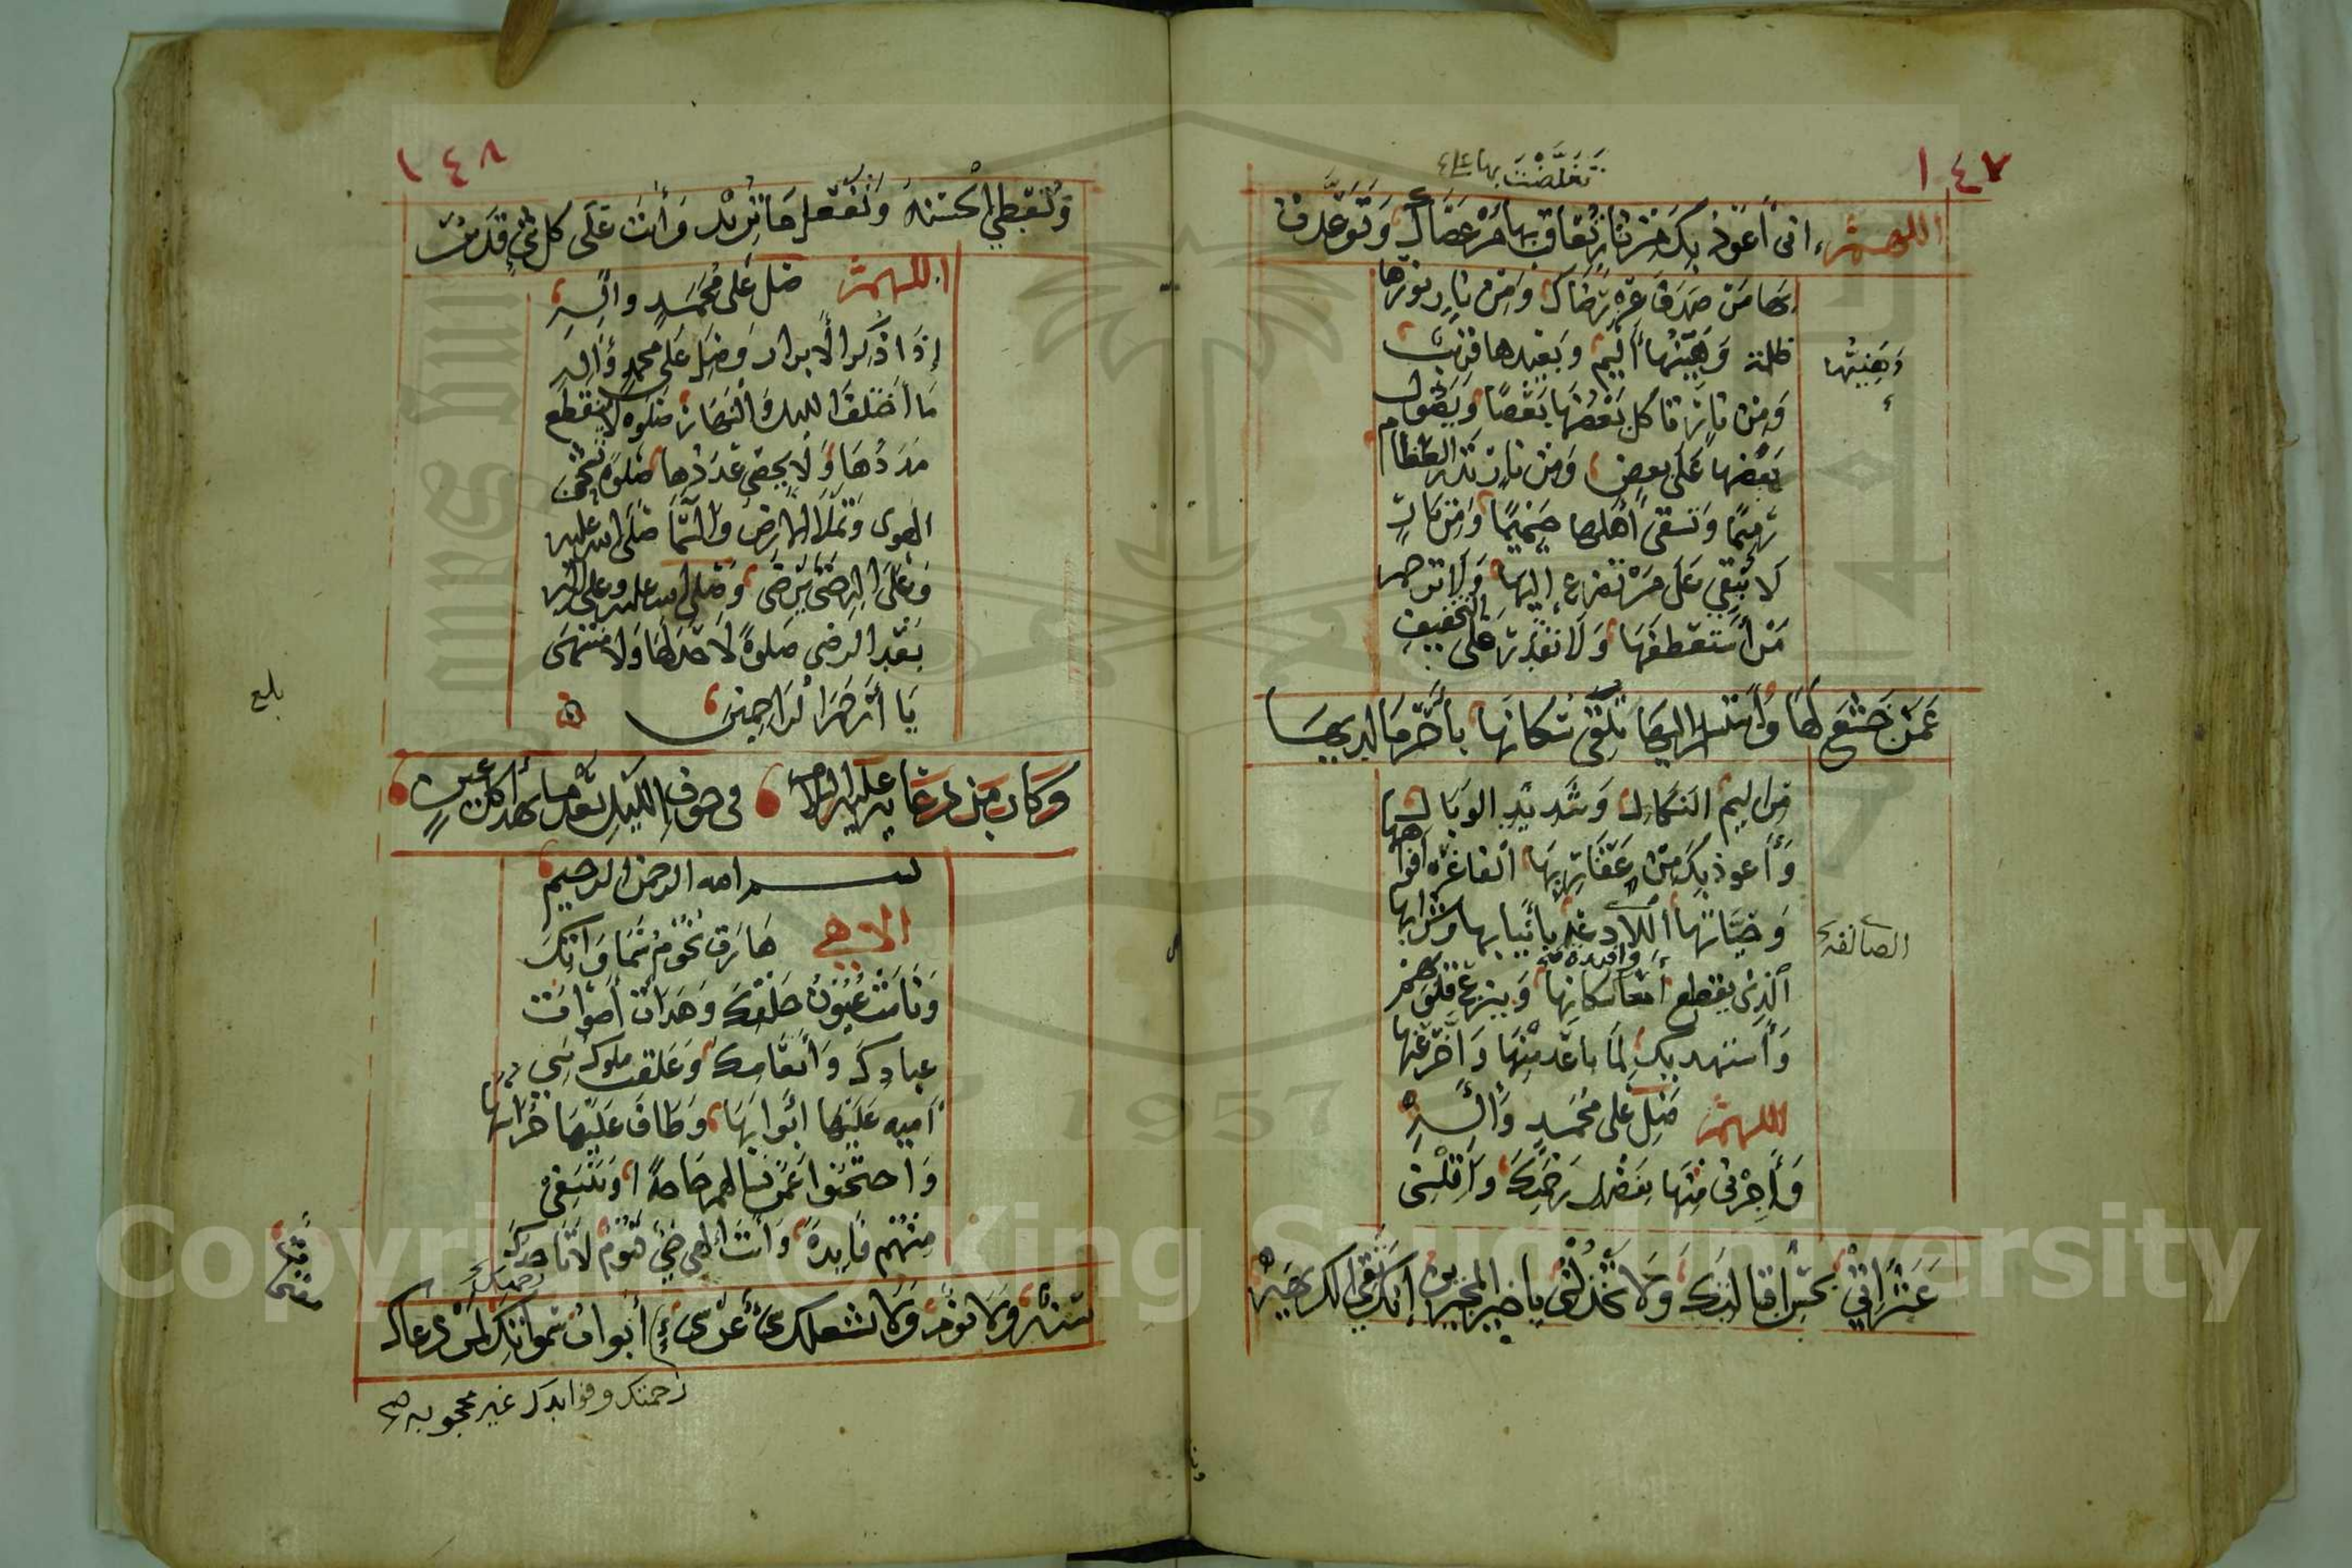 ١٤٧
تغلظت بها على
اللهم اني أعوذ بك من نار تعاقب بها من عصاك وتوعدت
بها من صدف عن رضاك ومن نار نورها
ظلمة وهينها أليم وبعيدها قريب
وهينها
ومن نار تاكل بعضها بعضا ويصول
بعضها على بعض ومن نار تذر العظام
رميما وتسقي أهلها حميما ومن نار
لا تبقي على من تضرع إليها ولا ترحم
من أستعطفها ولا تقدر على التخفيف
عمن خشع لها وأستسلم اليها تلقى سكانها بأحر ما لديها
من اليم النكال وشديد الوبال
وأعوذ بك من عقاربها الفاغرة أفواهها
وحياتها اللادغة بأنيابها وشرابها
الصالقة
الذي يقطع أمعاء سكانها وينزع قلوبهم
وافئدة
وأستهديك لما باعد منها وأخر عنها
اللهم صل على محمد وآله
وأجرني منها بفضل رحمتك وأقلني
عثراتي بحسن اقالتك ولا تخذلني يا خير المجيرين انك تقي الكريهة
١٤٨
وتعطي الحسنة وتفعل ما تريد وأنت على كل شيء قدير
اللهم صل على محمد وآله
إذا ذكر الأبرار وصل على محمد وآله
ما أختلف الليل والنهار صلوة لا ينقطع
مددها ولا يحصى عددها صلوة تشحن
الهوى وتملأ الارض والسما صلى الله عليه
وعلى اله حتى يرضى وصلى الله عليه وعلى اله
بعد الرضى صلوة لا حد لها ولا منتهى
يا أرحم الراحمين
بلغ
وكان من دعائه عليه السلام في جوف الليل بعد ما يهدا كل عين
بسم الله الرحمن الرحيم
الاهي هارت نجوم سماواتك
ونامت عيون خلقك وهدات أصوات
عبادك وأنعامك وغلقت ملوك بني
اميه عليها ابوابها وطاف عليها حراسها
واحتجبوا عمن يسالهم حاجة او ينتجع
منهم فايدة وأنت الهي حي قيوم لا تاخذك
سنة ولا نوم ولا يشغلك شيء عن شيء أبواب سمواتك لمن دعاك
رحمتك وفوايدك غير محجوبه صح